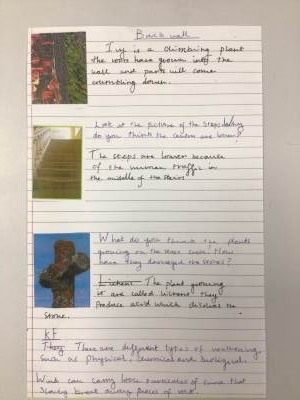 Back wall
Ivy is a climbing plant
the roots have grown into the
wall and parts will come
crumbling down.
Look at the picture of the steps. Why
do you think the centre are lower?
The steps are lower because
of the human traffic in
the middle of the stairs
What do you think the plants
growing on the stone cross. How
have they damaged the stones?
Lichens The plant growing
it are called lichens they
Produce acid which dissolves the
stone.
KF
They There are different types of weathering
such as physical, chemical and biological.
Wind can carry loose particles of sand that
slowly break away pieces of rock.